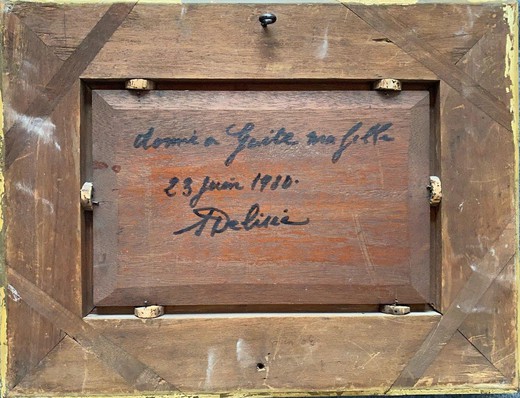 donné a Guite ma fille
23 Juin 1900.
Delisie